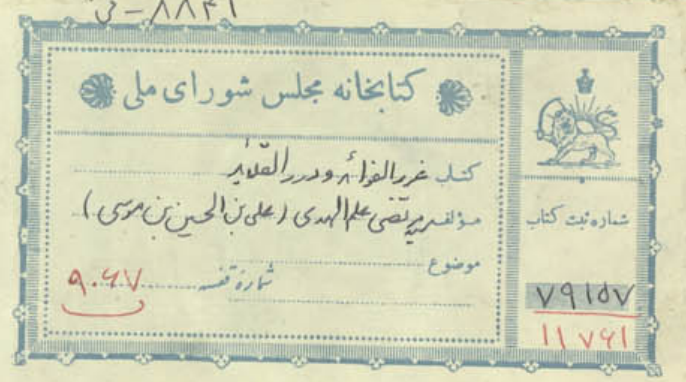 ۸۸۴۱ - ف
کتابخانه مجلس شورای ملی
کتاب غرر الفوائد و درر القلائد
مؤلف سید مرتضی علم الهدی (علی بن الحسین بن موسی)
موضوع
شماره قفسه ۹۰۶۷
شماره ثبت کتاب
۷۹۱۵۷
۱۱۷۶۱